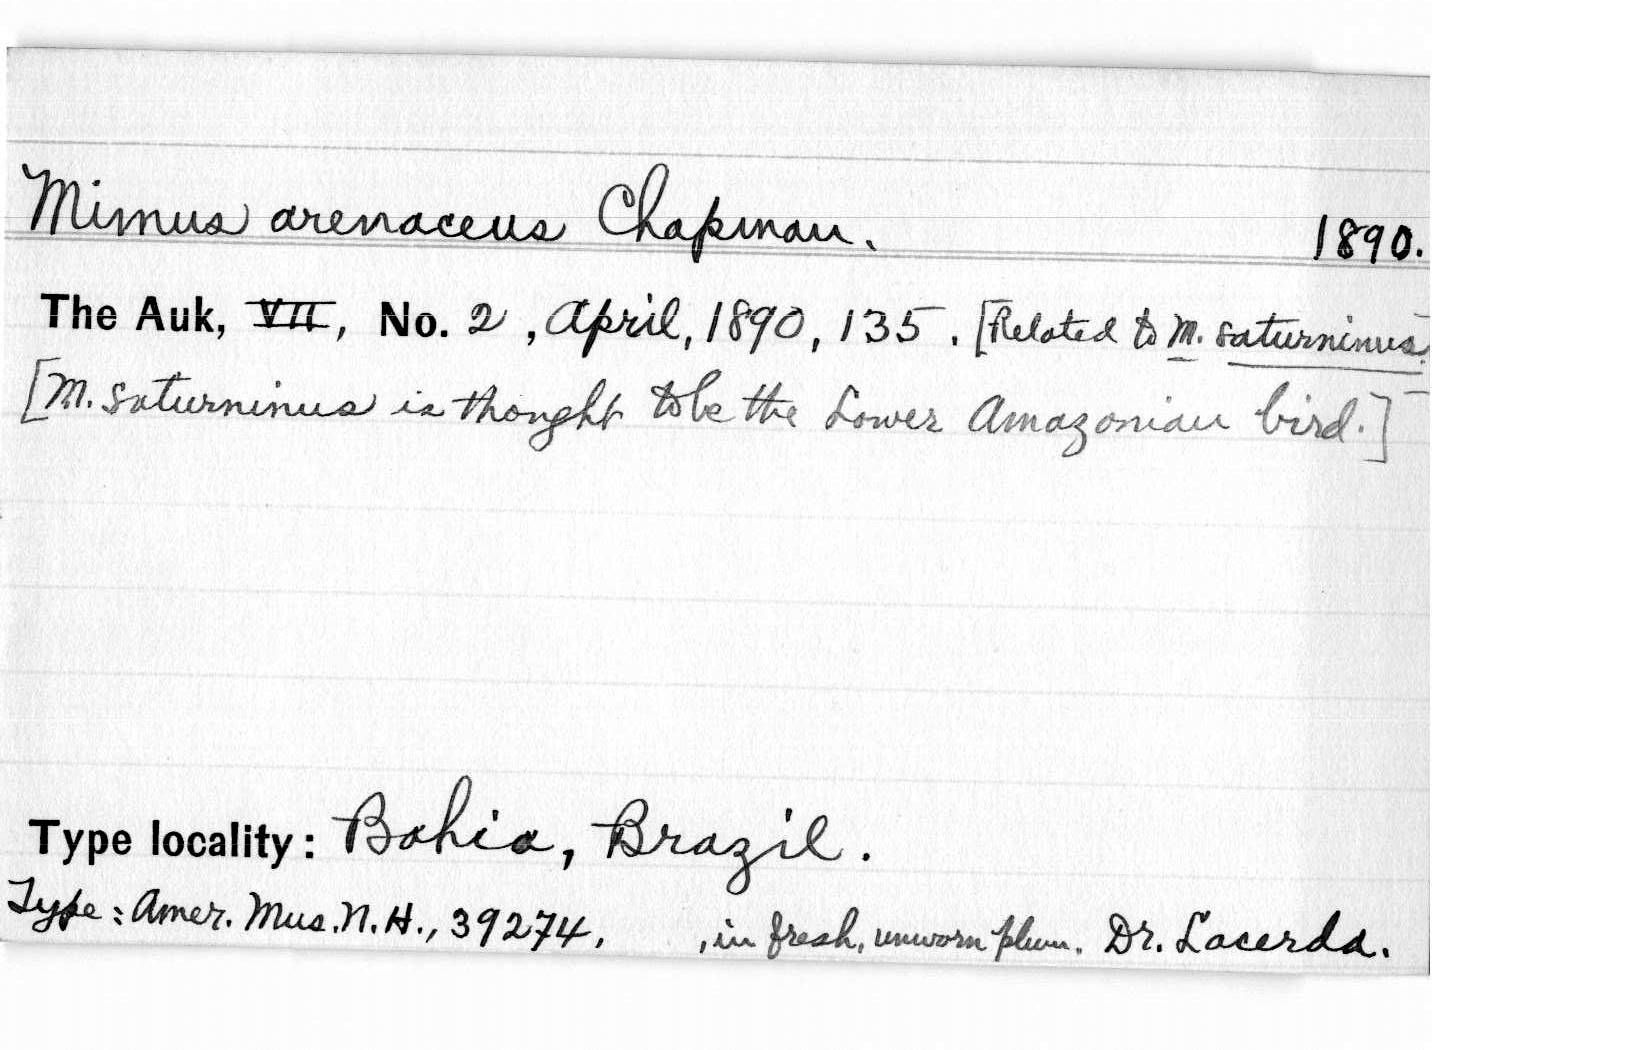 Mimus arenaceus Chapman. 1890.
The Auk, VII, No. 2, April, 1890, 135. [Related to M. saturninus.]
[M. saturninus is thought to be the Lower Amazonian bird.]
Type locality: Bahia, Brazil.
Type: Amer. Mus. N. H., 39274, , in fresh, unworn plum. Dr. Lacerda.